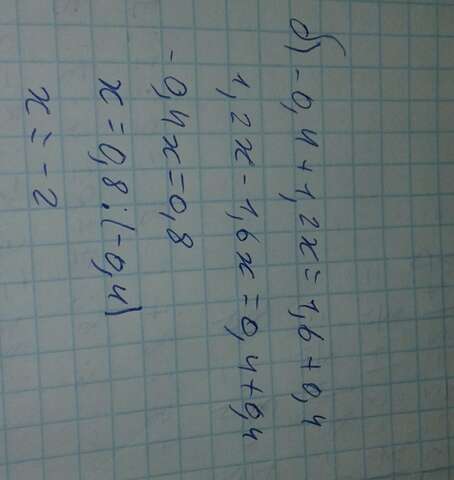 б) -0,4+1,2x=1,6+0,4
1,2x-1,6x=0,4+0,4
-0,4x=0,8
x=0,8:(-0,4)
x=-2